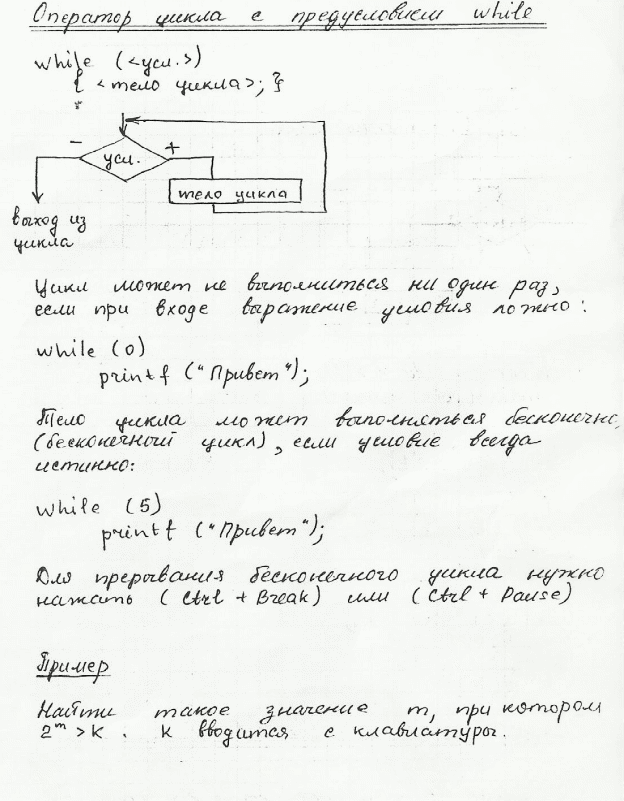 Оператор цикла с предусловием while
while (<усл.>)
{ <тело цикла>; }
-
усл.
+
тело цикла
выход из
цикла
Цикл может не выполниться ни один раз,
если при входе выражение условия ложно:
while (0)
printf ("Привет");
Тело цикла может выполняться бесконечно
(бесконечный цикл), если условие всегда
истинно:
while (5)
printf ("Привет");
Для прерывания бесконечного цикла нужно
нажать (Ctrl + Break) или (Ctrl + Pause)
Пример
Найти такое значение m, при котором
2^m > k. k вводится с клавиатуры.